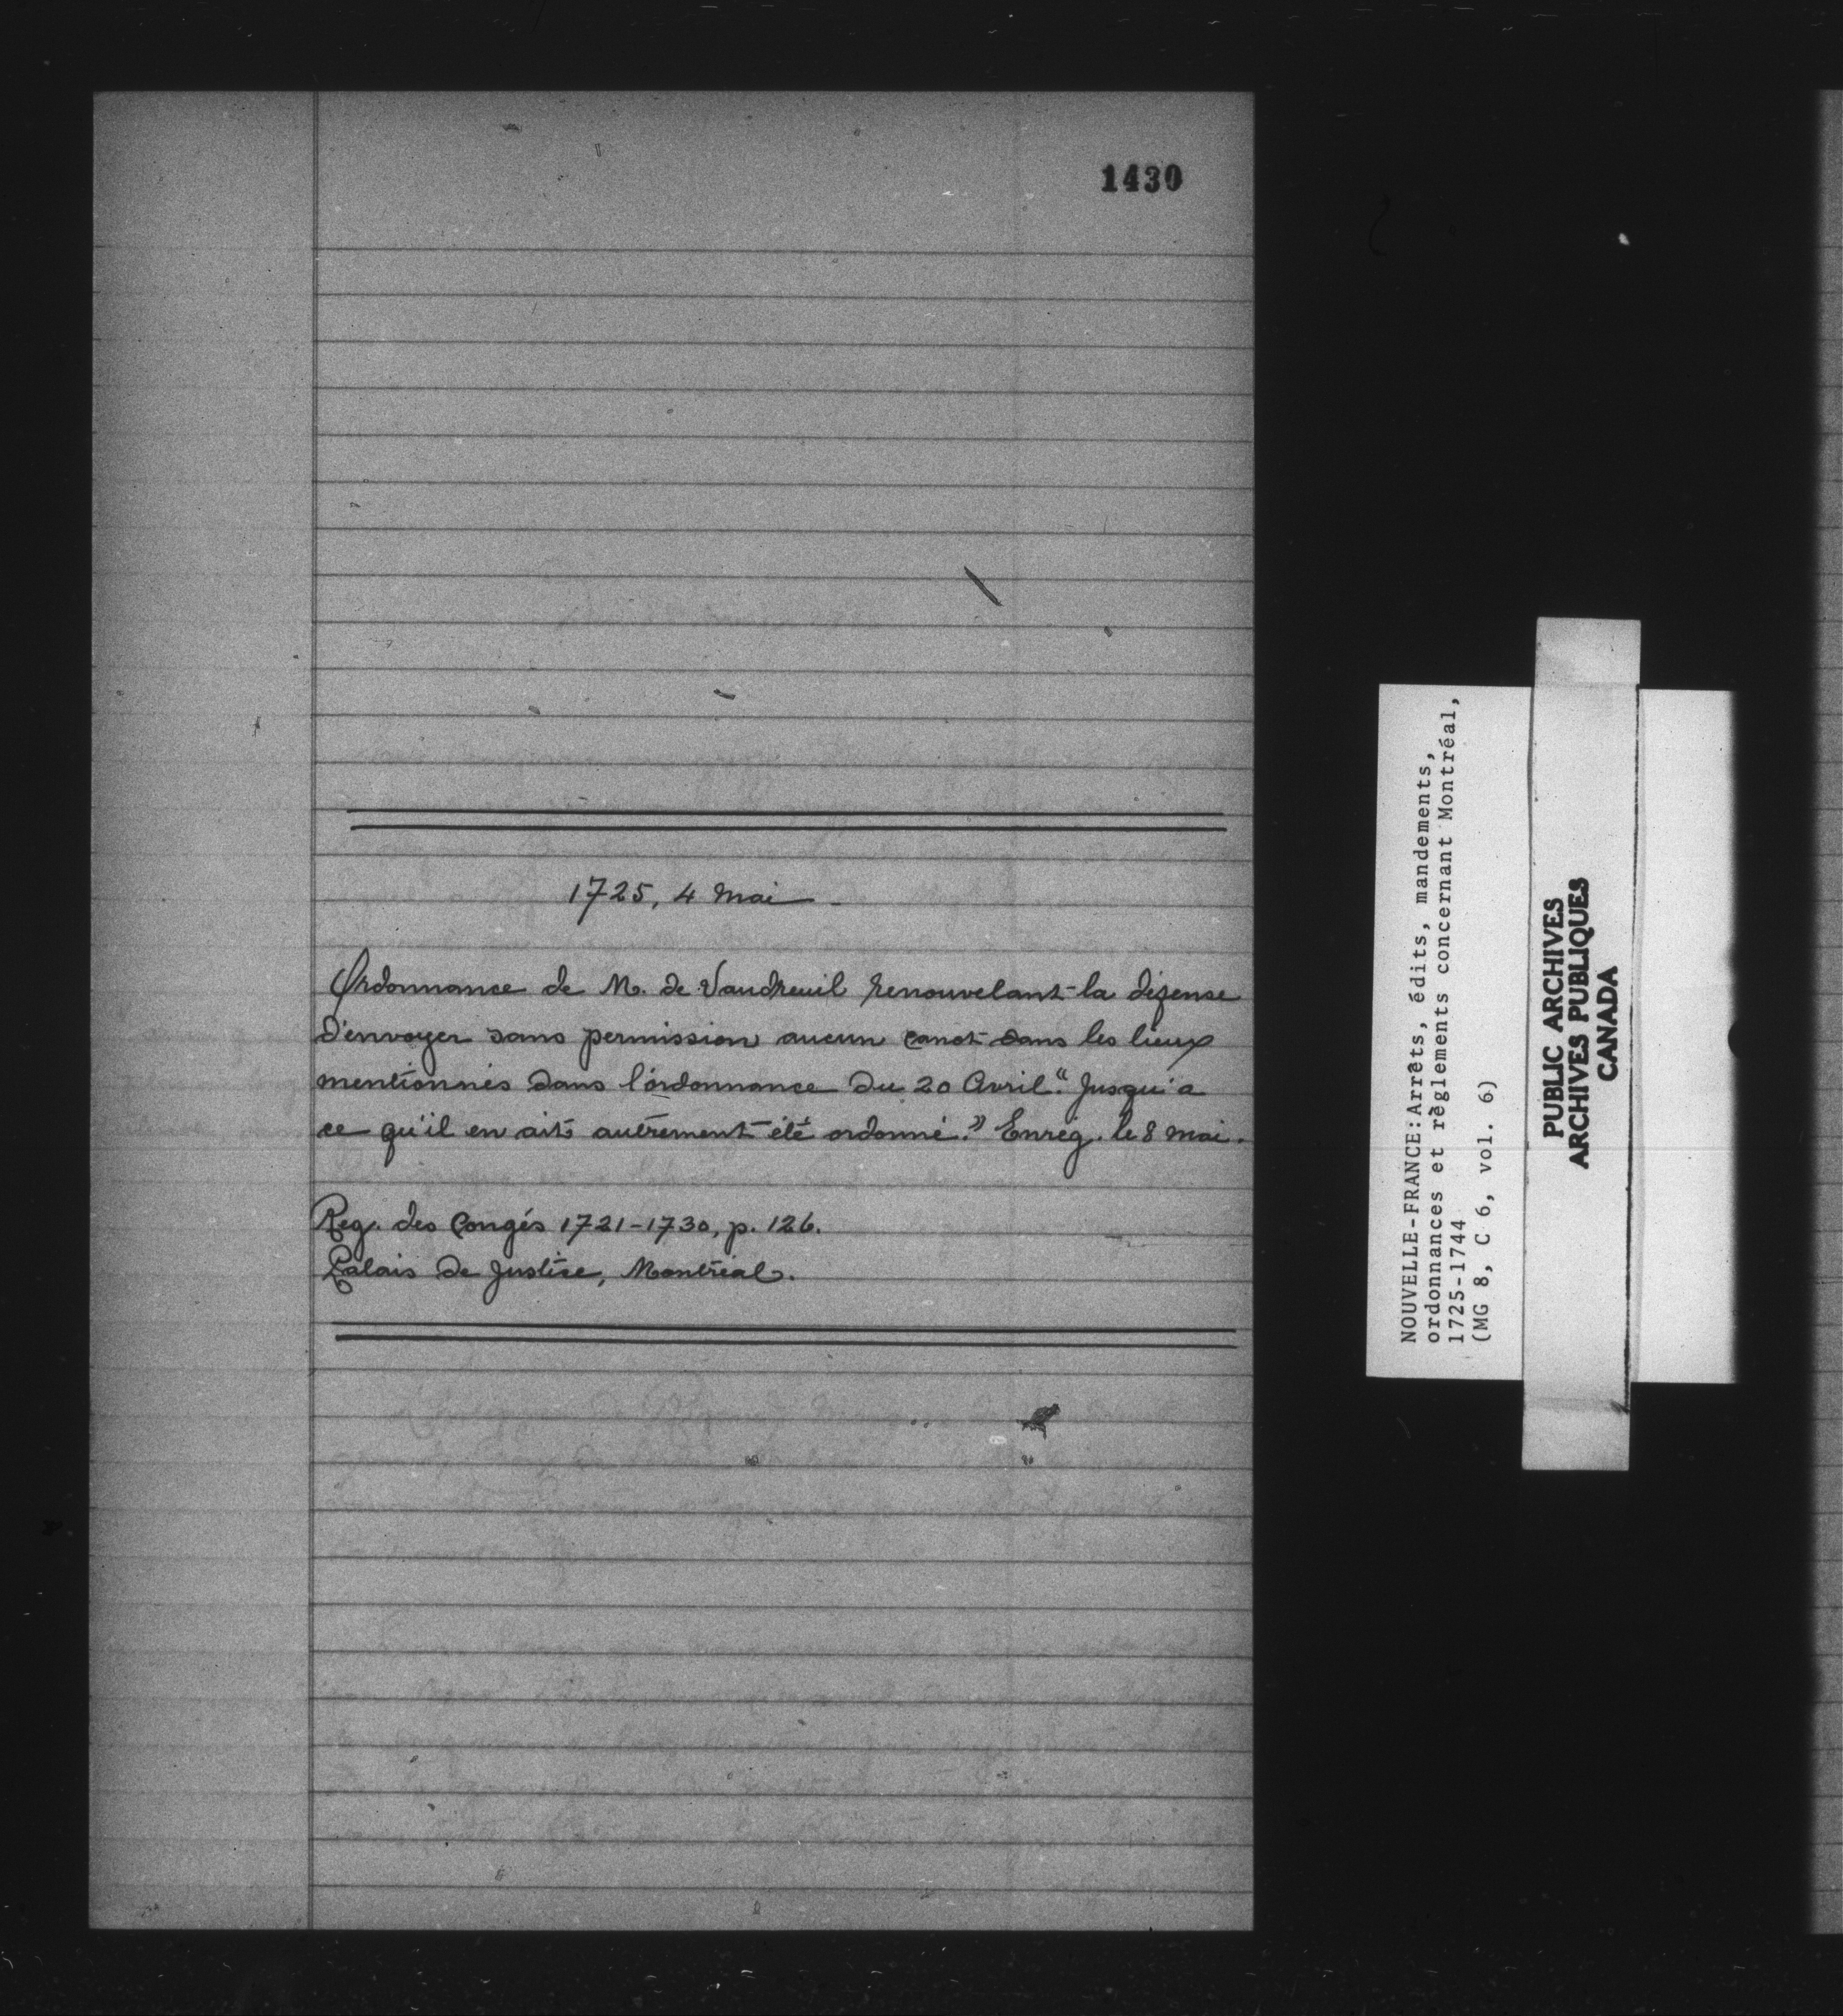 1430
1725, 4 mai -
Ordonnance de M. de Vaudreuil renouvelant la défense
d'envoyer sans permission aucun canot dans les lieux
mentionnés dans l'ordonnance du 20 Avril "Jusqu'a
ce qu'il en ait autrement été ordonné." Enrég. le 8 mai.
Reg. des Congés 1721-1730, p. 126.
Palais de Justice, Montréal.
NOUVELLE-FRANCE: Arrêts, édits, mandements,
ordonnances et règlements concernant Montréal,
1725-1744
(MG 8, C 6, vol. 6)
PUBLIC ARCHIVES
ARCHIVES PUBLIQUES
CANADA